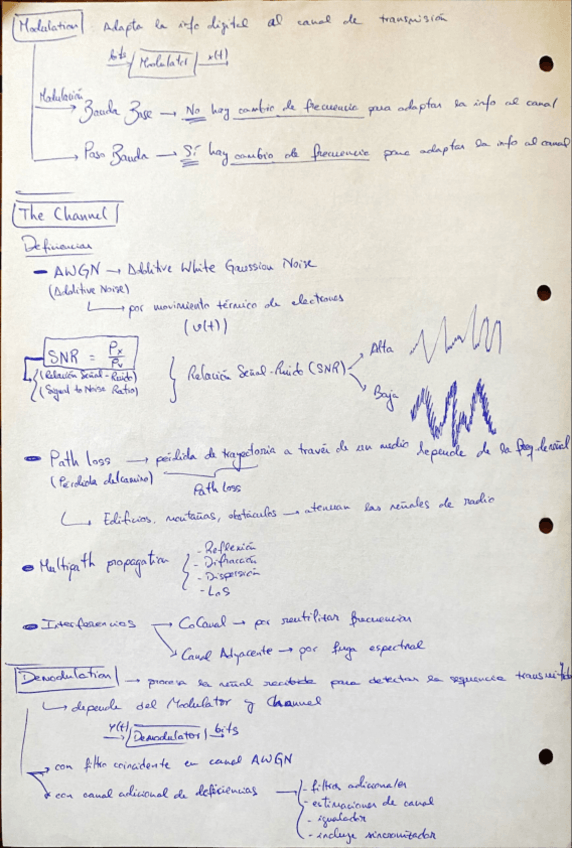 Modulation Adapta la info digital al canal de transmisión
bits Modulator x(t)
Modulación
Banda Base → No hay cambio de frecuencia para adaptar la info al canal
Paso Banda → Sí hay cambio de frecuencia para adaptar la info al canal
The Channel
Deficiencias
- AWGN → Additive White Gaussian Noise
(Additive Noise)
por movimiento térmico de electrones
(v(t))
SNR = Px/Pv
(Relación Señal-Ruido)
(Signal to Noise Ratio)
Relación Señal-Ruido (SNR)
Alta
Baja
- Path loss → pérdida de trayectoria a través de un medio depende de la freq. de señal
(Pérdida del camino)
Path loss
Edificios, montañas, obstáculos → atenuan las señales de radio
- Multipath propagation
- Reflexión
- Difracción
- Dispersión
- LoS
- Interferencias → CoCanal → por reutilizar frecuencias
Canal Adyacente → por fuga espectral
Demodulation → procesa la señal recibida para detectar la sequencia transmitida
depende del Modulator y Channel
y(t) Demodulator bits
→ con filtro coincidente en canal AWGN
→ con canal adicional de deficiencias →
- filtros adicionales
- estimaciones de canal
- igualador
- incluye sincronizador